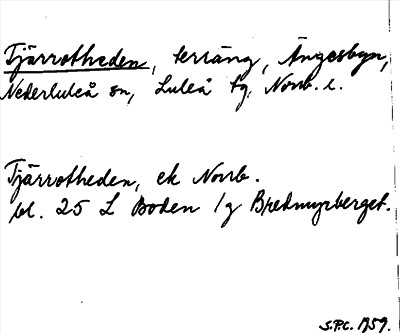 Tjärrotheden, terräng, Ängesbyn,
Nederluleå sn, Luleå tg, Norrb. l.
Tjärrotheden, ek Norrb.
bl. 25 L Boden 1g Bredmyrberget.
S.P.C. 1959.